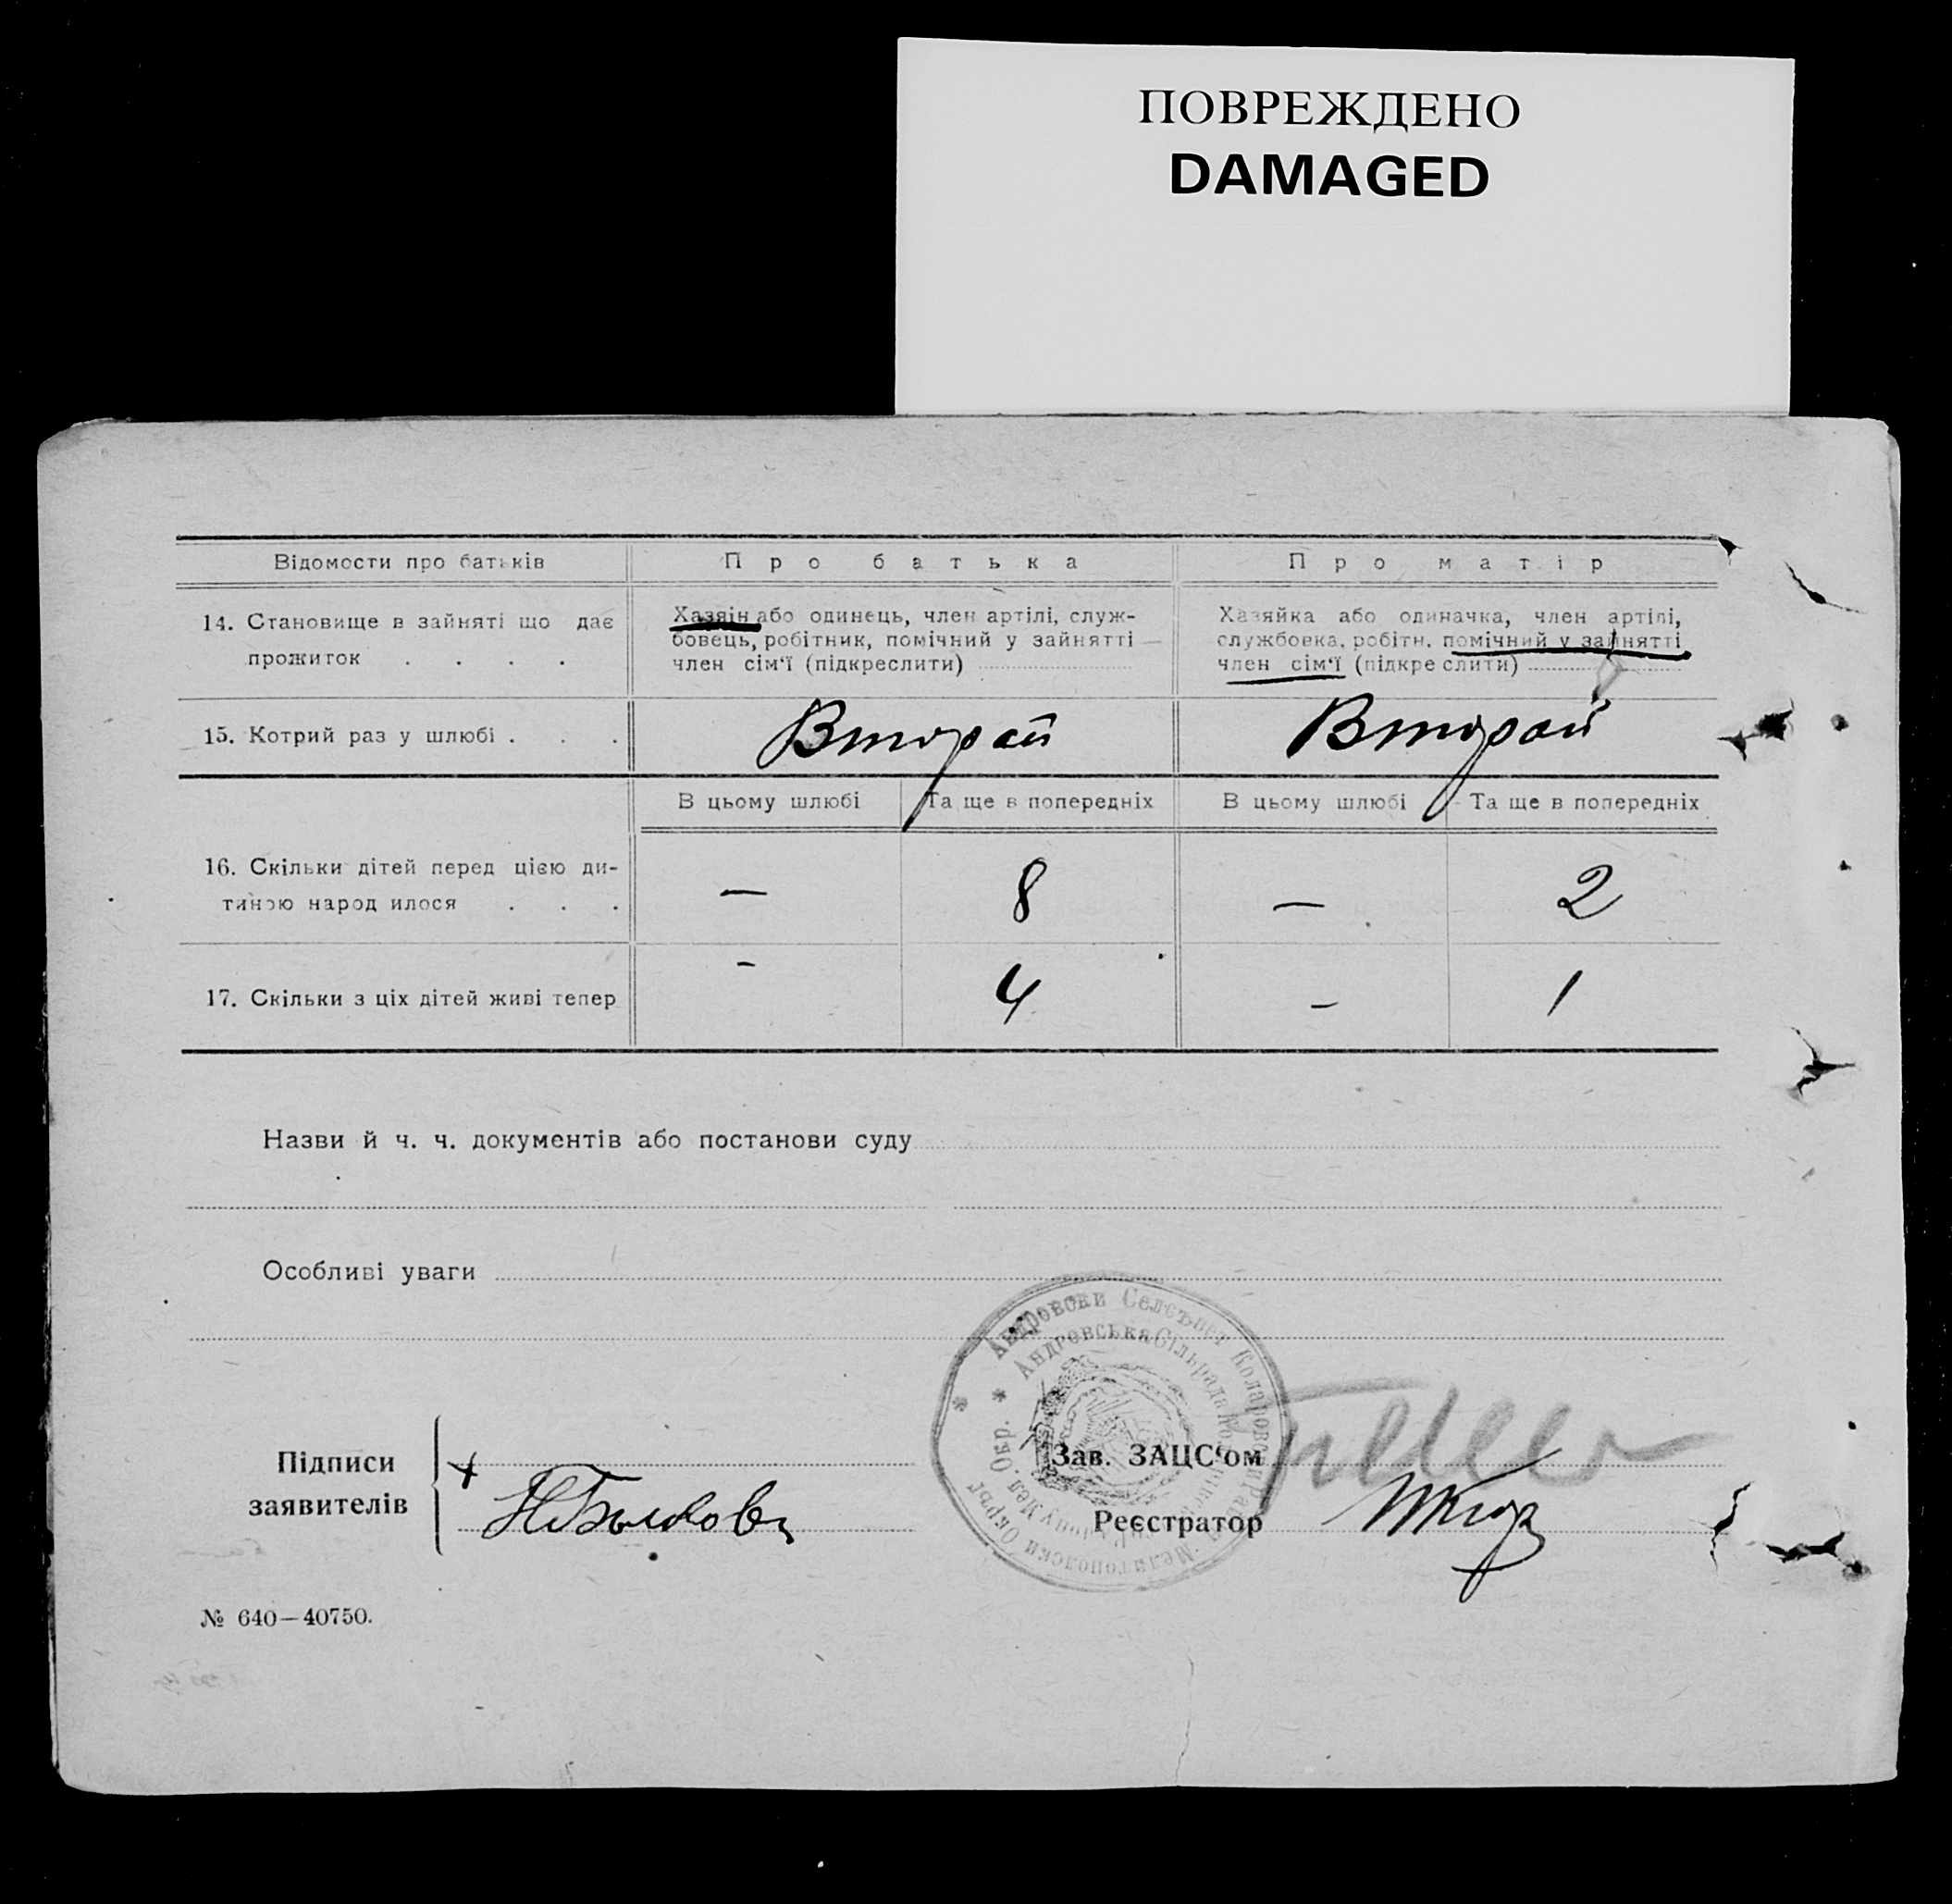 ПОВРЕЖДЕНО
DAMAGED
Відомости про батьків
Про батька
Про матір
14. Становище в зайняті що дає
прожиток . . . .
Хазяін або одинець, член артілі, служ-
бовець, робітник, помічний у зайнятті —
член сім'ї (підкреслити)
Хазяйка або одиначка, член артілі,
службовка, робітн. помічний у зайнятті
член сім'ї (підкреслити)
15. Котрий раз у шлюбі . . .
Вторай
Вторай
В цьому шлюбі
Та ще в попередніх
В цьому шлюбі
Та ще в попередніх
16. Скільки дітей перед цією ди-
тиною народилося . . .
—
8
—
2
17. Скільки з ціх дітей живі тепер
-
4
-
1
Назви й ч. ч. документів або постанови суду
Особливі уваги
Андровски Селсъвет Коларовски
Мелитополски Окръг
Андровська Сільрада
Мел. Окр.
Підписи
заявителів
Зав. ЗАЦС'ом
Реєстратор
№ 640—40750.